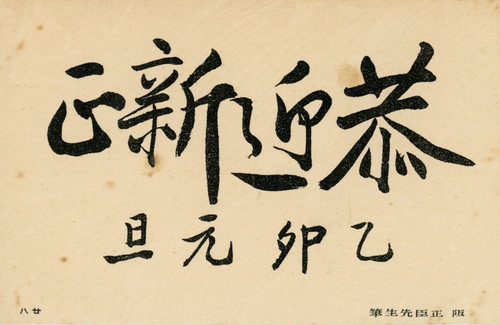 恭迎新正
乙卯元旦
阪正臣先生筆
廿八